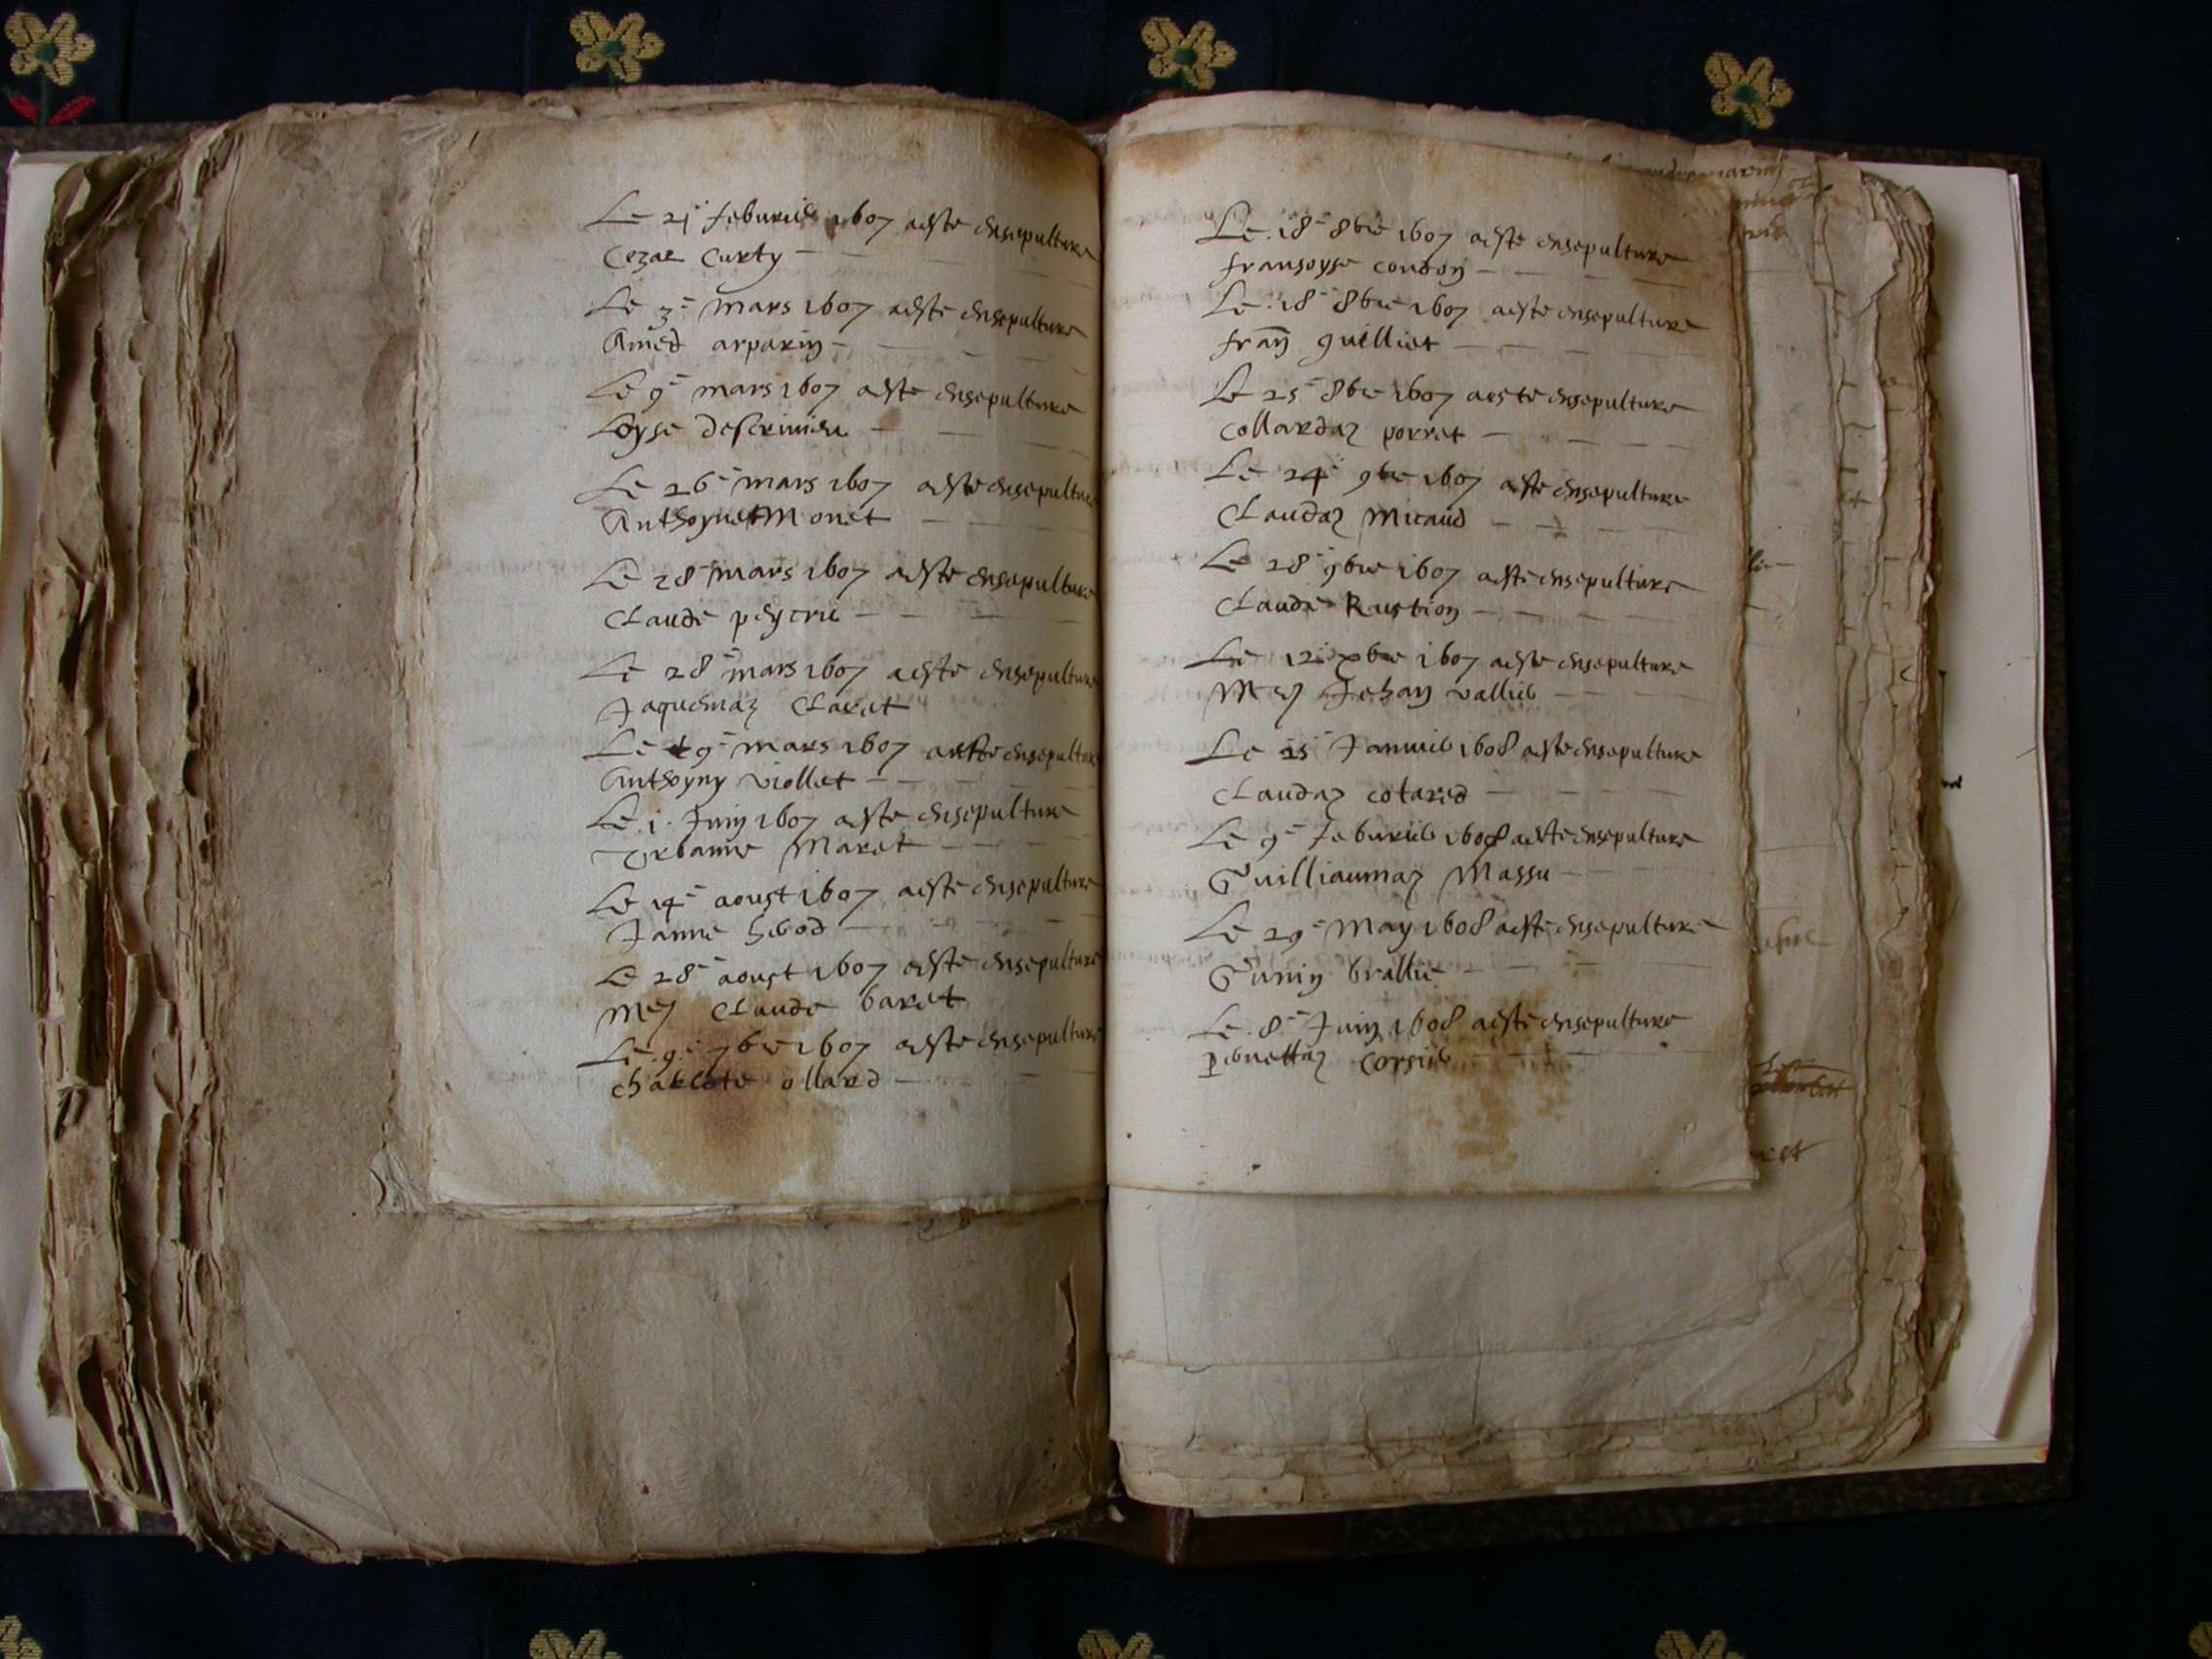 Le 21 feburier 1607 aeste ensepulture
Cezar Curty
Le 3e mars 1607 aeste ensepulture
Amed arparin
Le 9e mars 1607 aeste ensepulture
Loyse
Le 26e mars 1607 aeste ensepulture
Anthoynet Monet
Le 28e mars 1607 aeste ensepulture
Claude
Le 28e mars 1607 aeste ensepulture
Jaquemaz Claret
Le 9e mars 1607 aeste ensepulture
Anthoyny viollet
Le 1. Juin 1607 aeste ensepulture
Urbanne Maret
Le 14e aoust 1607 aeste ensepulture
Janne
Le 28e aoust 1607 aeste ensepulture
Claude baret
Le 9e 7bre 1607 aeste ensepulture
charlote ollard
Le 18e 8bre 1607 aeste ensepulture
fransoyse
Le 18e 8bre 1607 aeste ensepulture
fran guilliet
Le 25e 8bre 1607 aeste ensepulture
Collardaz porret
Le 24e 9bre 1607 aeste ensepulture
Claudaz Micaud
Le 28e 9bre 1607 aeste ensepulture
Claude Rustion
Le 12e xbre 1607 aeste ensepulture
Jehan vallier
Le Januier 1608 aeste ensepulture
Claudaz cotared
Le 9e feburier 1608 aeste ensepulture
Guilliaumaz Massu
Le 29e May 1608 aeste ensepulture
brallie
Le 8e Juin 1608 aeste ensepulture
pernettaz Corsier